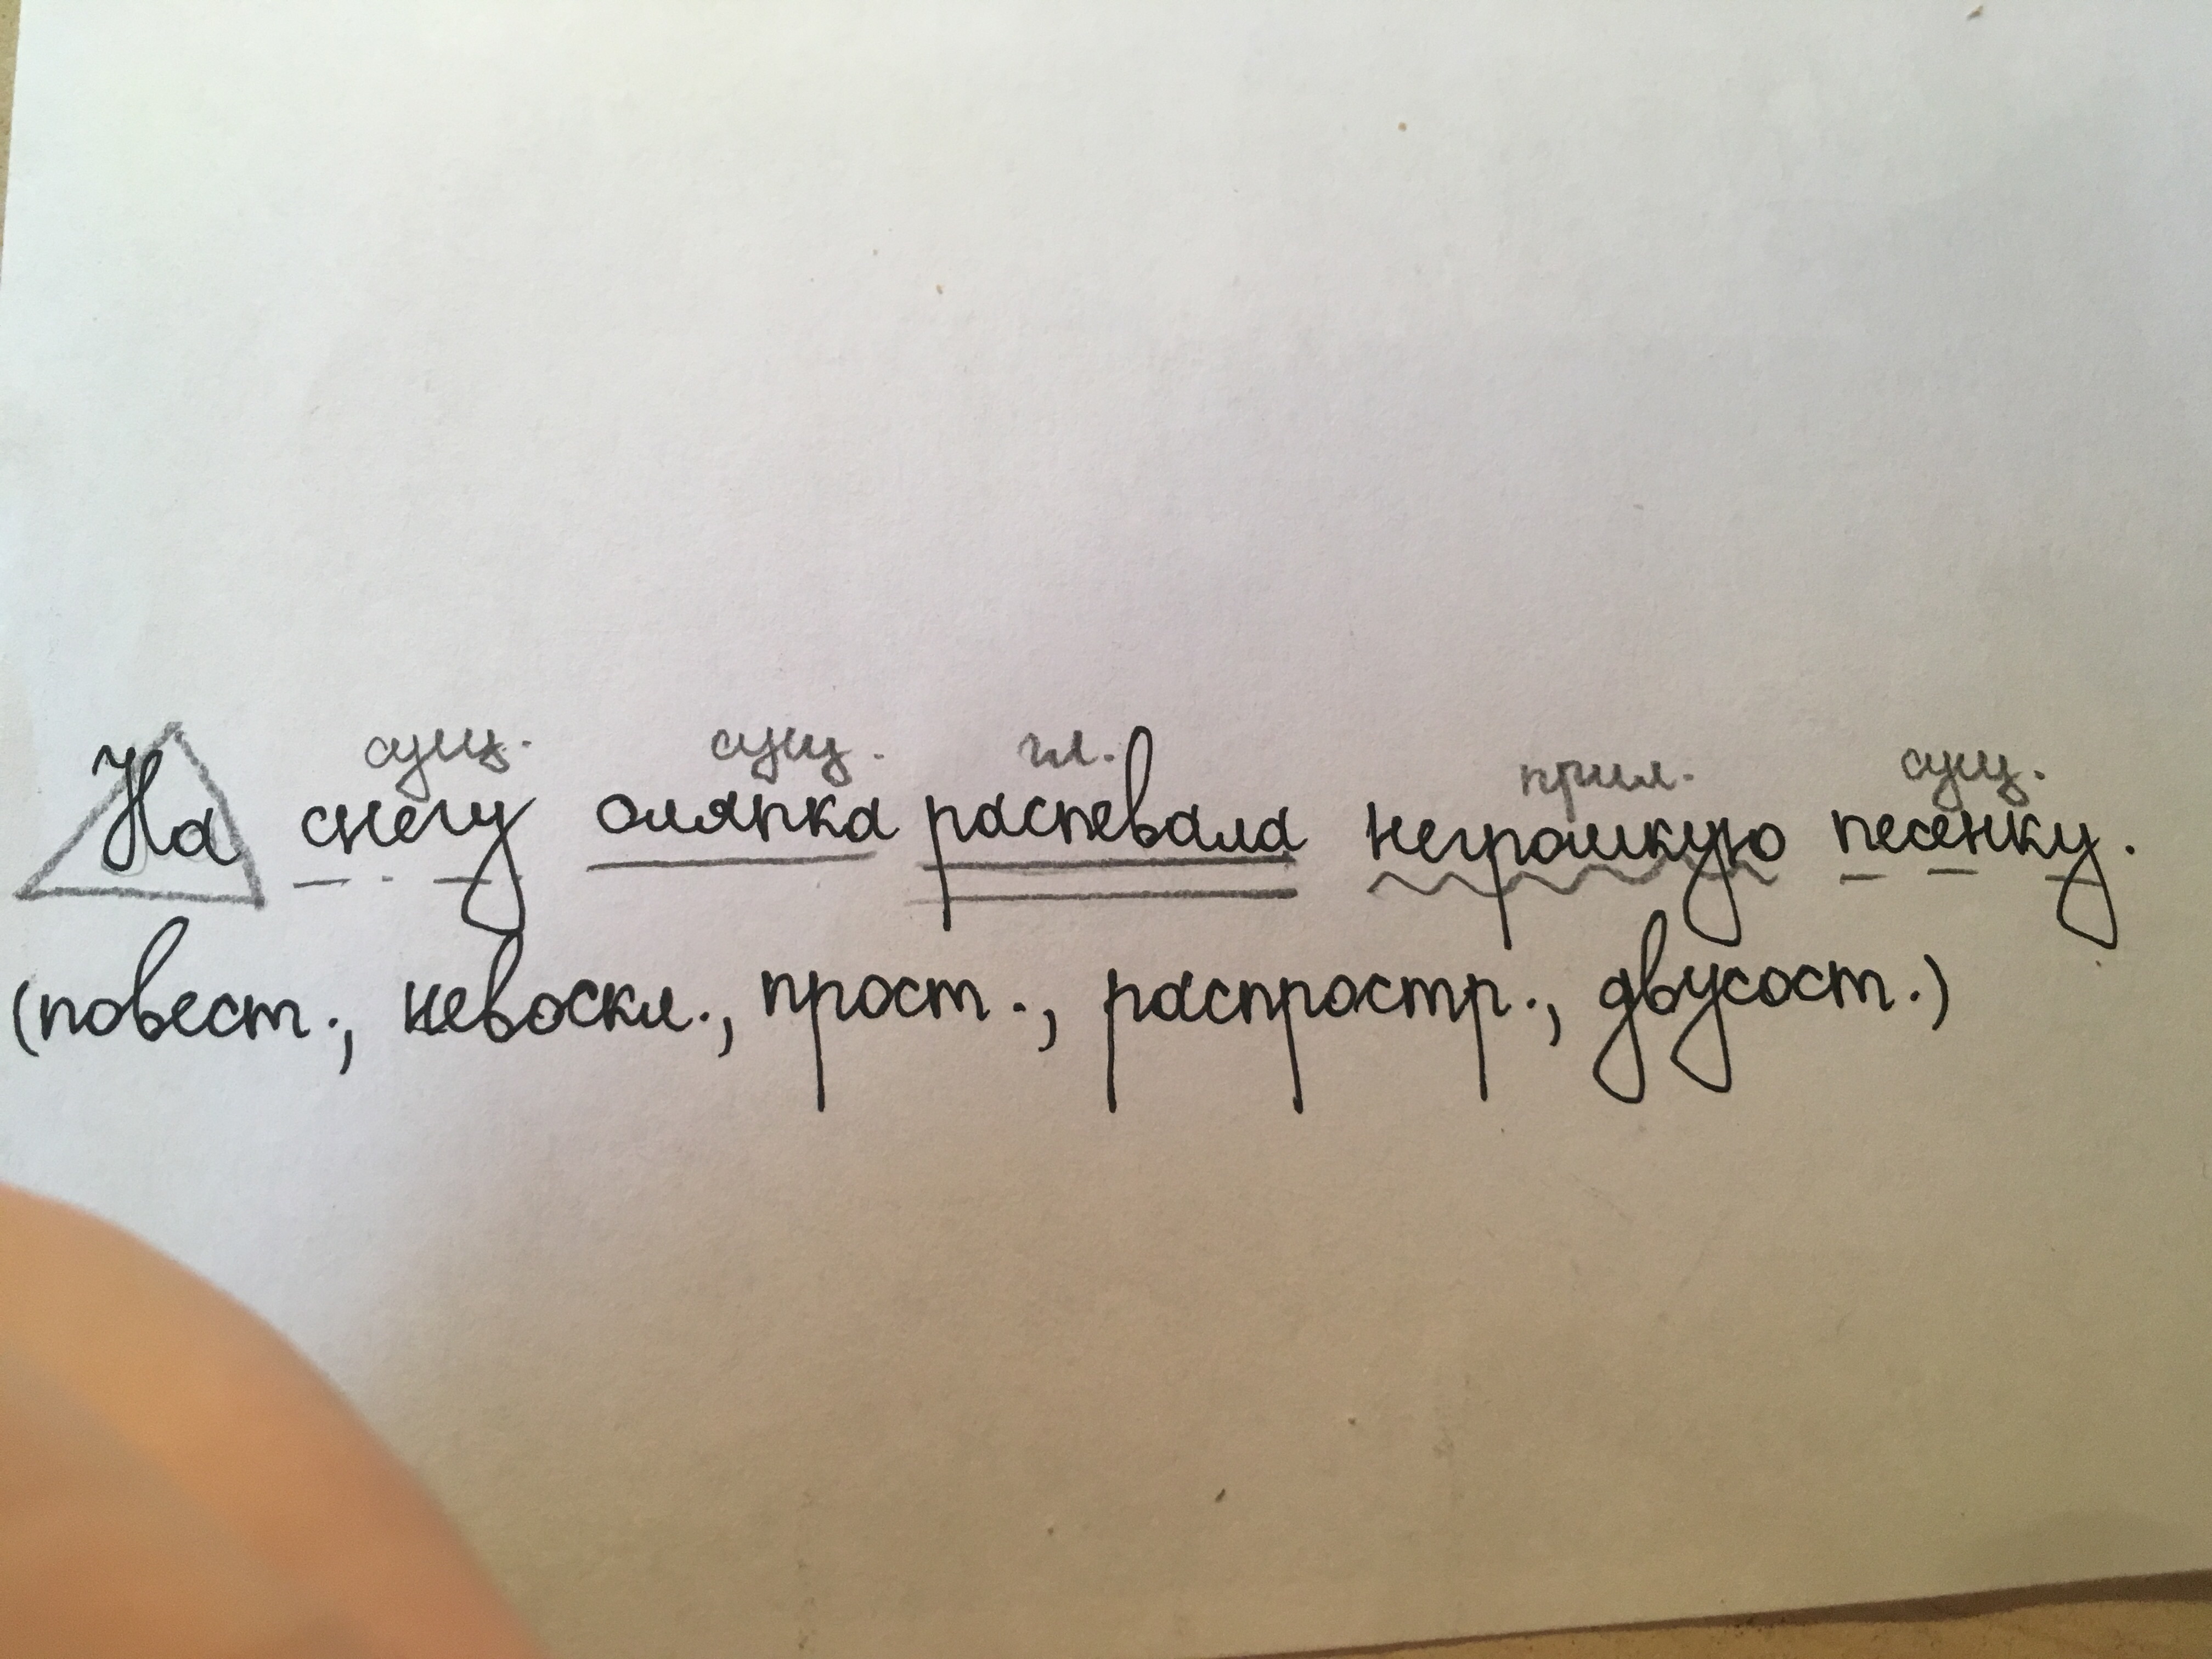 сущ. сущ. гл. прил. сущ.
На снегу оляпка распевала негромкую песенку.
(повест., невоскл., прост., распростр., двусост.)